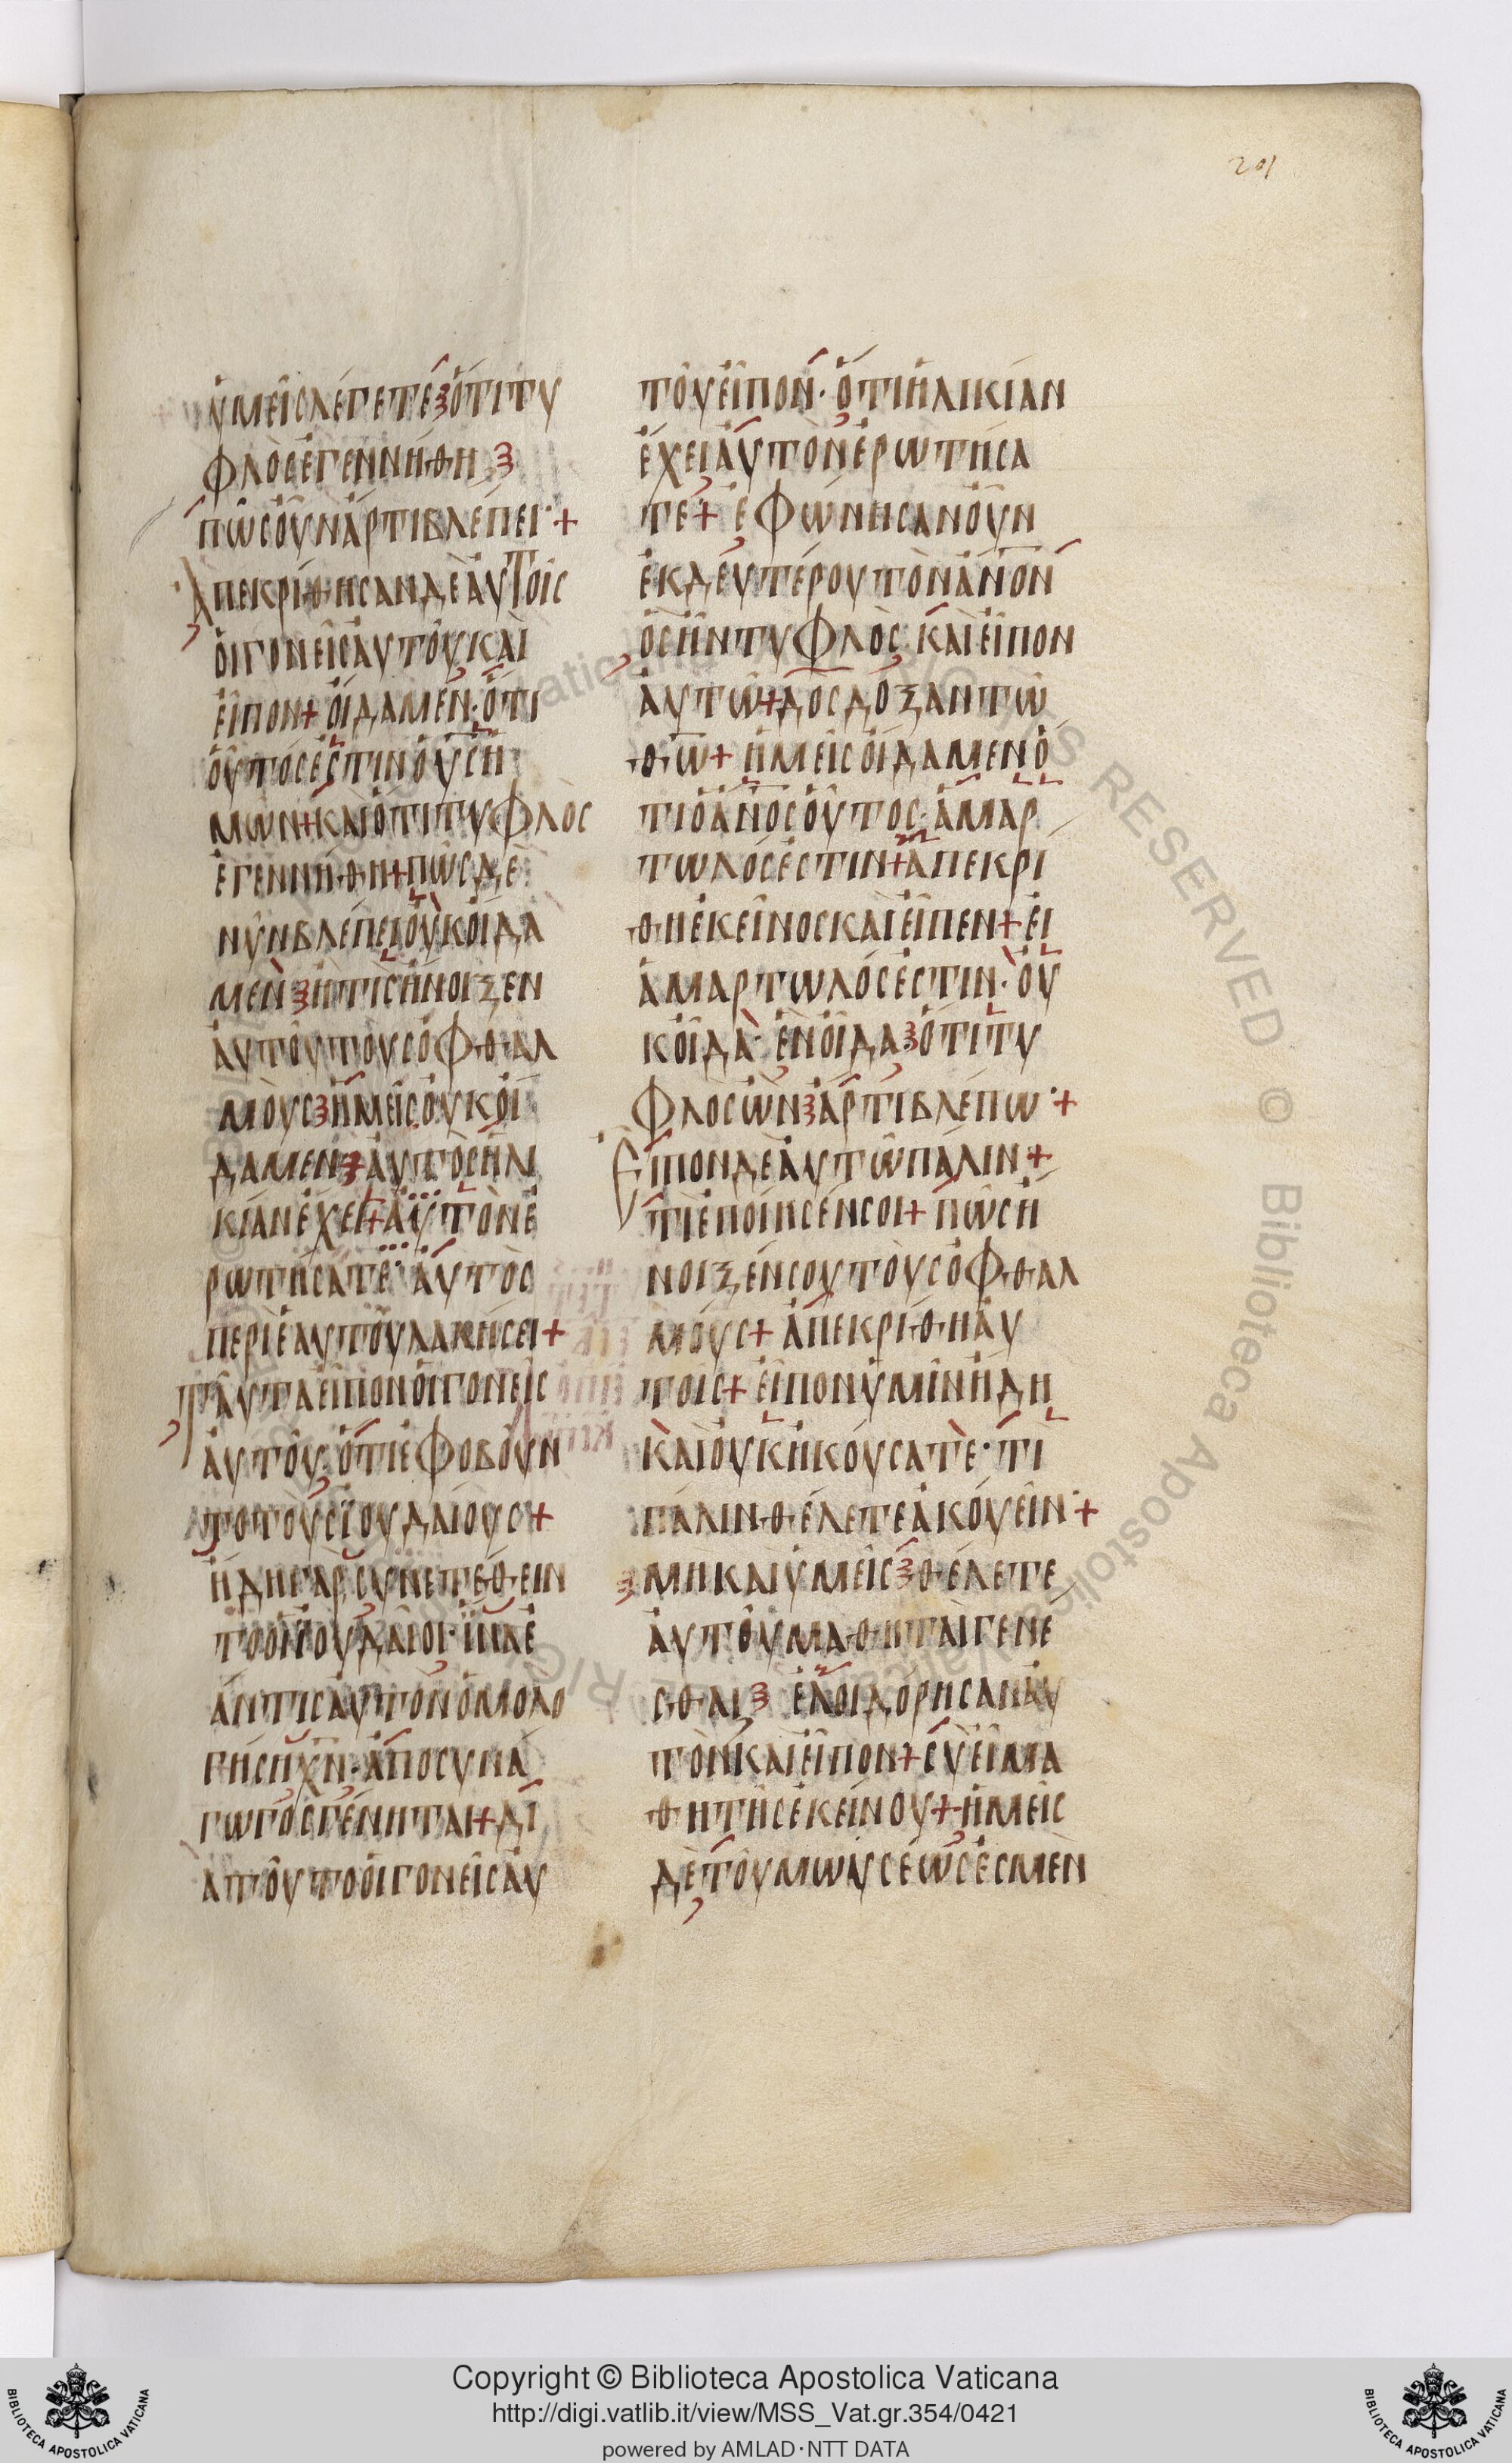 201
ὑμεῖς λέγετε ὅτι τυ
φλὸς ἐγεννήθη
πῶς οὖν ἄρτι βλέπει· +
Ἀπεκρίθησαν δὲ αὐτοῖς
οἱ γονεῖς αὐτοῦ καὶ
εἶπον + οἴδαμεν· ὅτι
οὗτός ἐστιν ὁ υς ἡ
μῶν + καὶ ὅτι τυφλὸς
ἐγεννήθη + πῶς δὲ
νῦν βλέπει οὐκ οἴδα
μεν ἢ τίς ἤνοιξεν
αὐτοῦ τοὺς ὀφθαλ
μοὺς ἡμεῖς οὐκ οἴ
δαμεν + αὐτὸς ἡλι
κίαν ἔχει + αὐτὸν ἐ
ρωτήσατε· αὐτὸς
περὶ ἑαυτοῦ λαλήσει +
Ταῦτα εἶπον οἱ γονεῖς
αὐτοῦ· ὅτι ἐφοβοῦν
το τοὺς ἰουδαίους +
ἤδη γὰρ συνετέθειν
το οἱ ἰουδαῖοι· ἵνα ἐ
άν τις αὐτὸν ὁμολο
γήσῃ χν· ἀποσυνά
γωγος γένηται + δι
α τοῦτο οἱ γονεῖς αὐ
τοῦ εἶπον· ὅτι ἡλικίαν
ἔχει αὐτὸν ἐρωτήσα
τε + ἐφώνησαν οὖν
ἐκ δευτέρου τὸν ανον
ὃς ἦν τυφλὸς· καὶ εἶπον
αὐτῷ + δὸς δόξαν τῷ
θω + ἡμεῖς οἴδαμεν ὅ
τι ὁ ανος οὗτος· ἁμαρ
τωλός ἐστιν + ἀπεκρί
θη ἐκεῖνος καὶ εἶπεν + εἰ
ἁμαρτωλός ἐστιν· οὐ
κ οἶδα· ἓν οἶδα ὅτι τυ
φλὸς ὢν ἄρτι βλέπω· +
Εἶπον δὲ αὐτῷ πάλιν +
τί ἐποίησέν σοι + πῶς ἤ
νοιξέν σου τοὺς ὀφθαλ
μούς + ἀπεκρίθη αὐ
τοῖς + εἶπον ὑμῖν ἤδη
καὶ οὐκ ἠκούσατε· τί
πάλιν θέλετε ἀκούειν· +
μὴ καὶ ὑμεῖς θέλετε
αὐτοῦ μαθηταὶ γενέ
σθαι ἐλοιδόρησαν αὐ
τὸν καὶ εἶπον + σὺ εἶ μα
θητὴς ἐκείνου + ἡμεῖς
δὲ τοῦ μωυσέως ἐσμὲν
Copyright © Biblioteca Apostolica Vaticana
http://digi.vatlib.it/view/MSS_Vat.gr.354/0421
powered by AMLAD·NTT DATA
BIBLIOTECA APOSTOLICA VATICANA
BIBLIOTECA APOSTOLICA VATICANA